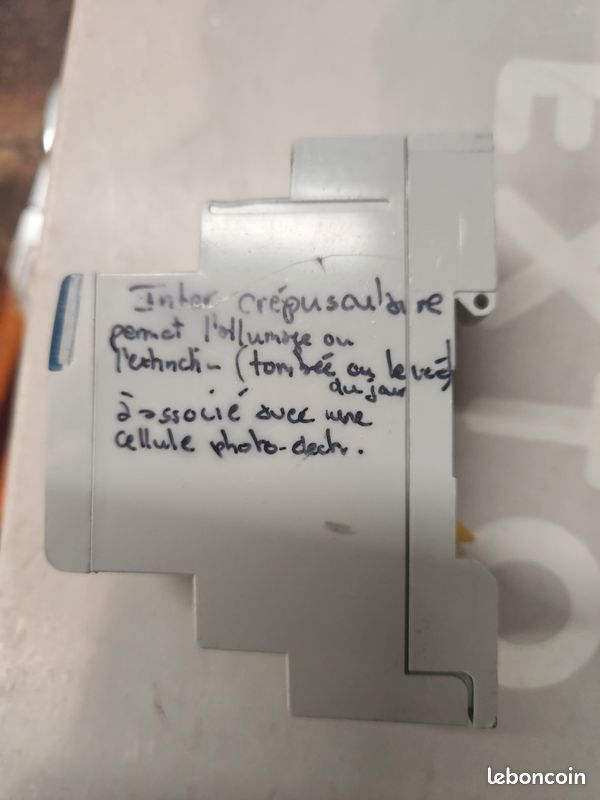 Inter crépusculaire
permet l'allumage ou
l'extincti- (tombée ou levé)
du jour
à associé avec une
cellule photo-électr.
EXTO
leboncoin